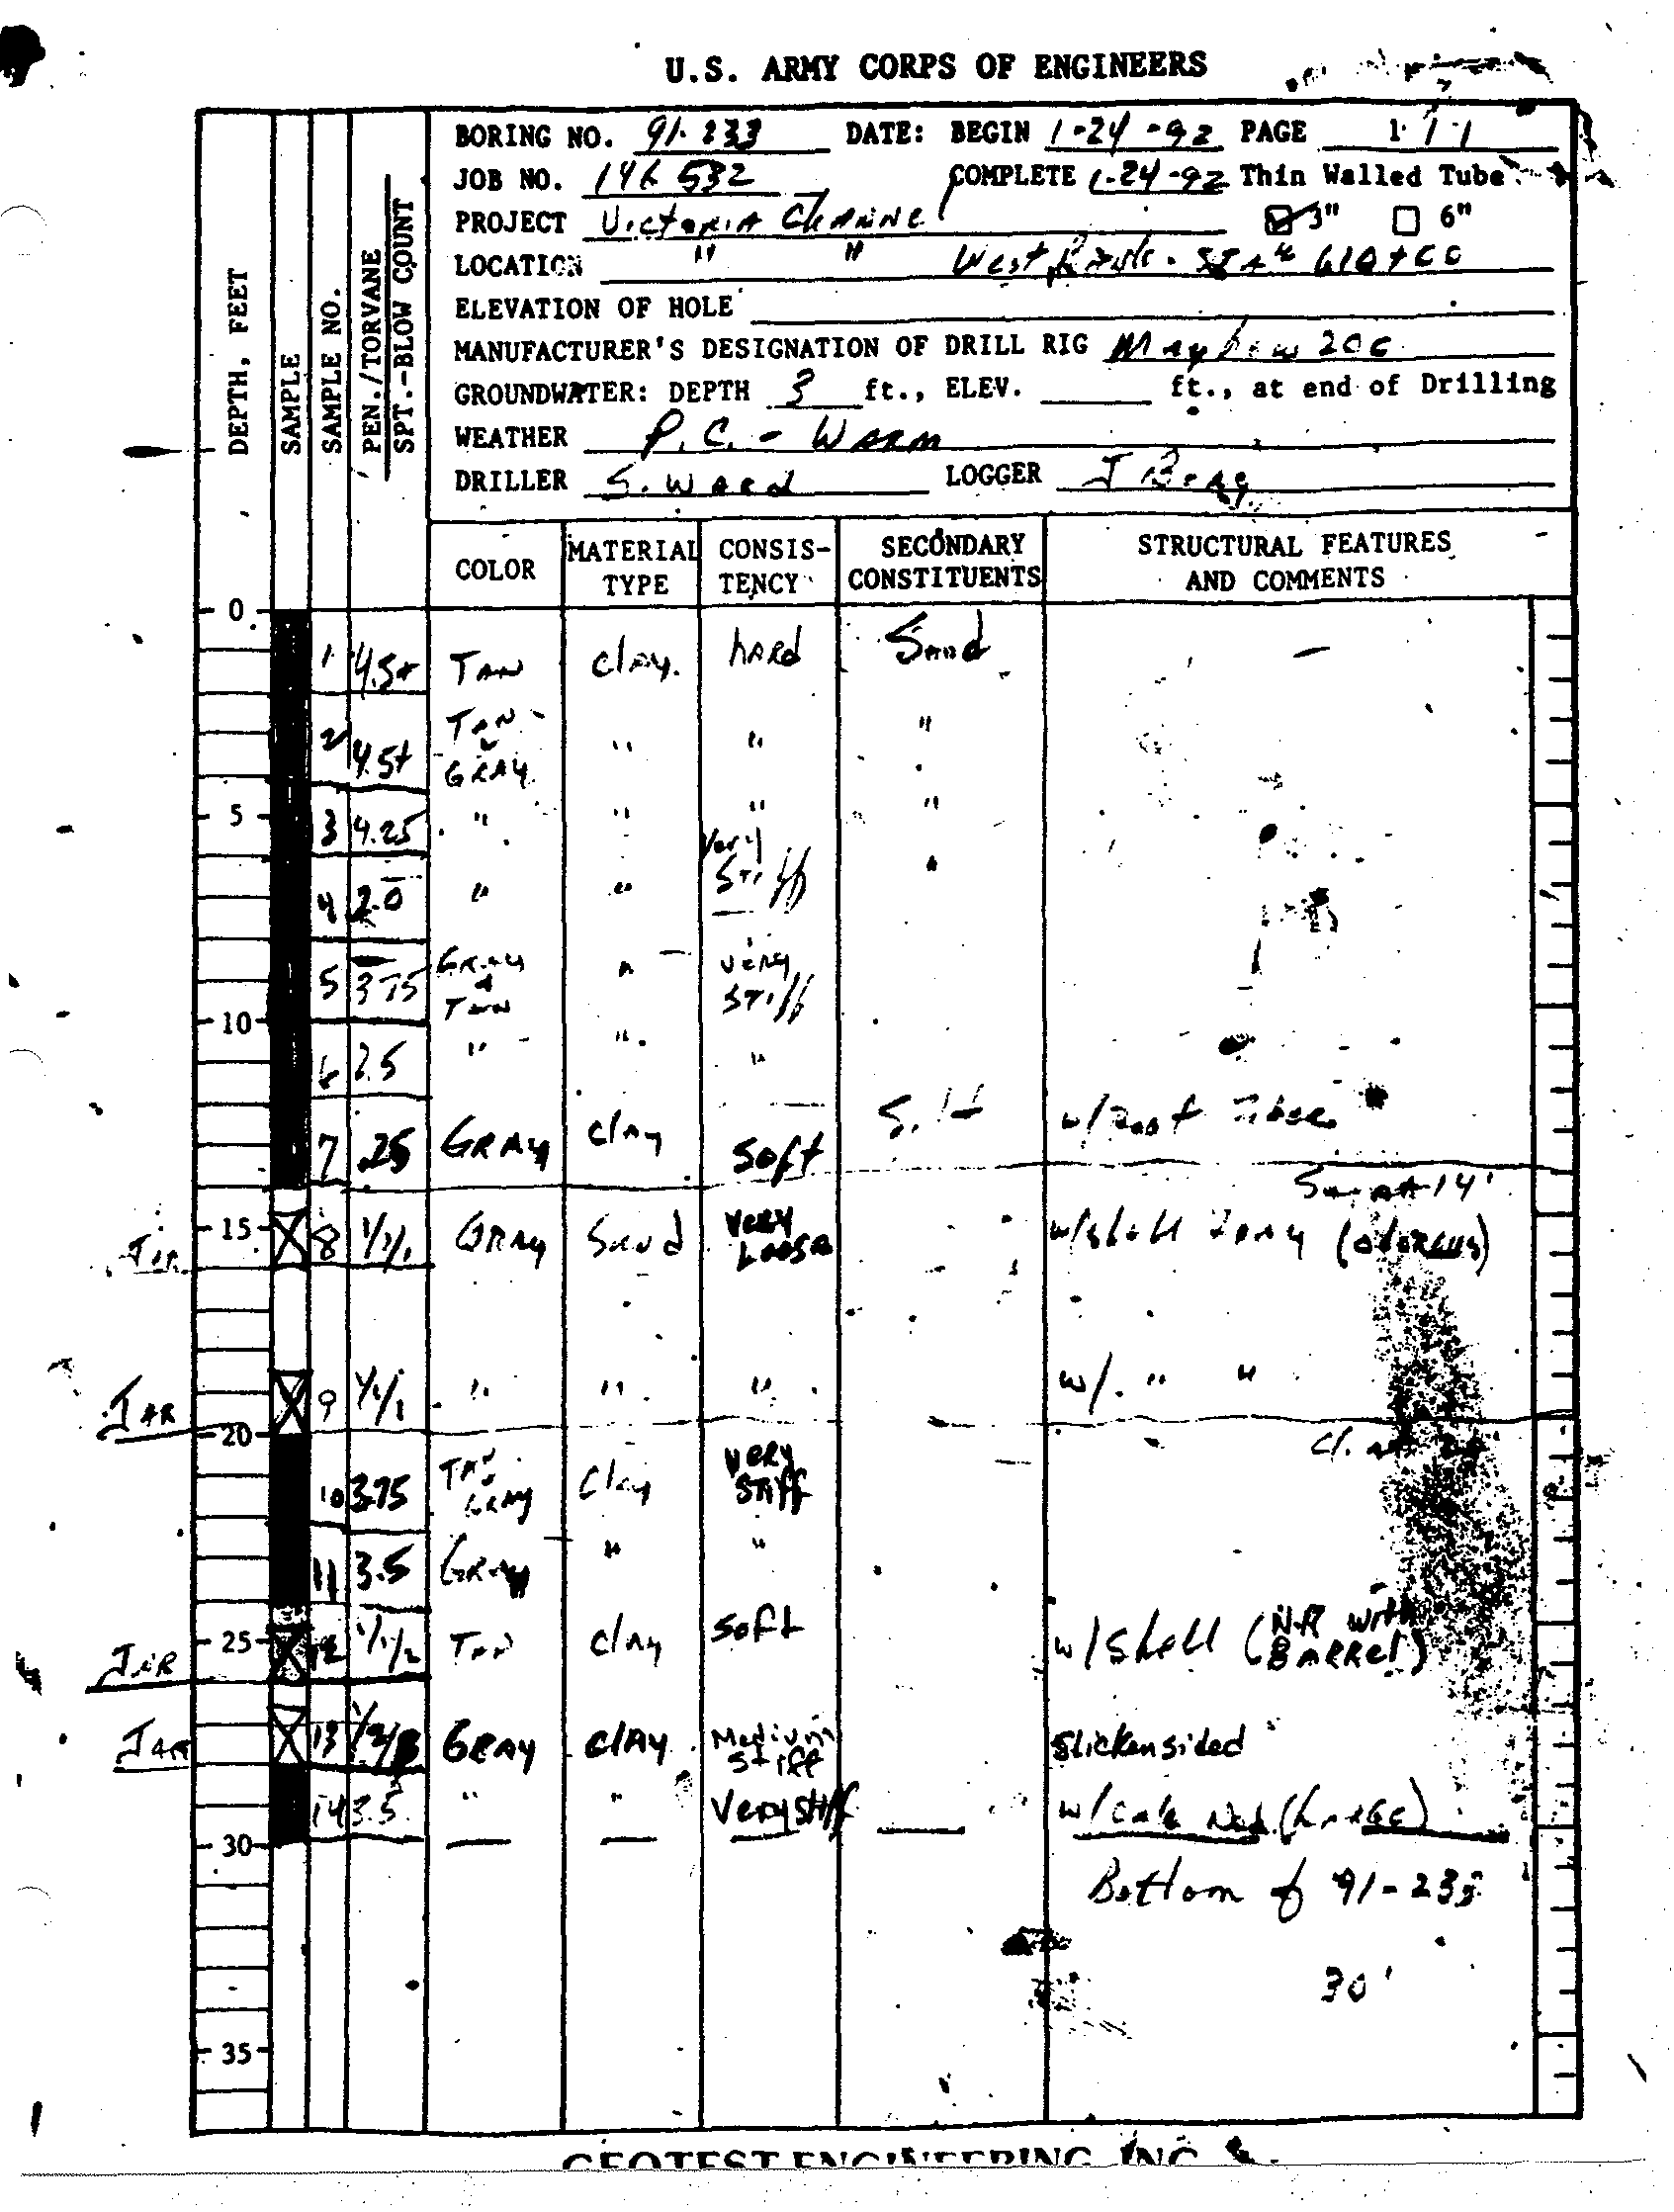 U.S. ARMY CORPS OF ENGINEERS
BORING NO. 91-233 DATE: BEGIN 1-24-92 PAGE 1 / 1
JOB NO. 146 532 COMPLETE 1-24-92 Thin Walled Tube
PROJECT Victoria Channel 3" 6"
LOCATION " " West Bank - 610+00
ELEVATION OF HOLE
MANUFACTURER'S DESIGNATION OF DRILL RIG Mayhew 200
GROUNDWATER: DEPTH 3 ft., ELEV. ft., at end of Drilling
WEATHER P.C. - WARM
DRILLER S. WARD LOGGER J Berg
DEPTH, FEET
SAMPLE
SAMPLE NO.
PEN./TORVANE
SPT.-BLOW COUNT
COLOR MATERIAL TYPE CONSIS-TENCY SECONDARY CONSTITUENTS STRUCTURAL FEATURES AND COMMENTS
0
1 4.5+ TAN clay. hard Sand —
2 4.5+ TAN & GRAY " " "
5
3 4.25 " " " "
4 2.0 " " Very Stiff "
5 3.75 GRAY & TAN " very stiff
10
6 2.5 " " "
7 .25 GRAY clay soft Silt w/Root Fiber
14'
15
Jar 8 1/1/1 GRAY Sand very Loose w/shell (odorous)
Jar 9 1/1/1 " " " w/. " "
20
10 3.75 TAN & GRAY Clay very Stiff
11 3.5 GRAY " "
25
Jar 12 1/1/2 TAN clay soft w/shell (N.R with BARREL)
Jar 13 1/2/3 GRAY clay Medium stiff Slickensided
14 3.5 " " Very stiff — w/calc Nod. (Large)
30
Bottom of 91-233
30'
35
GEOTEST ENGINEERING, INC.